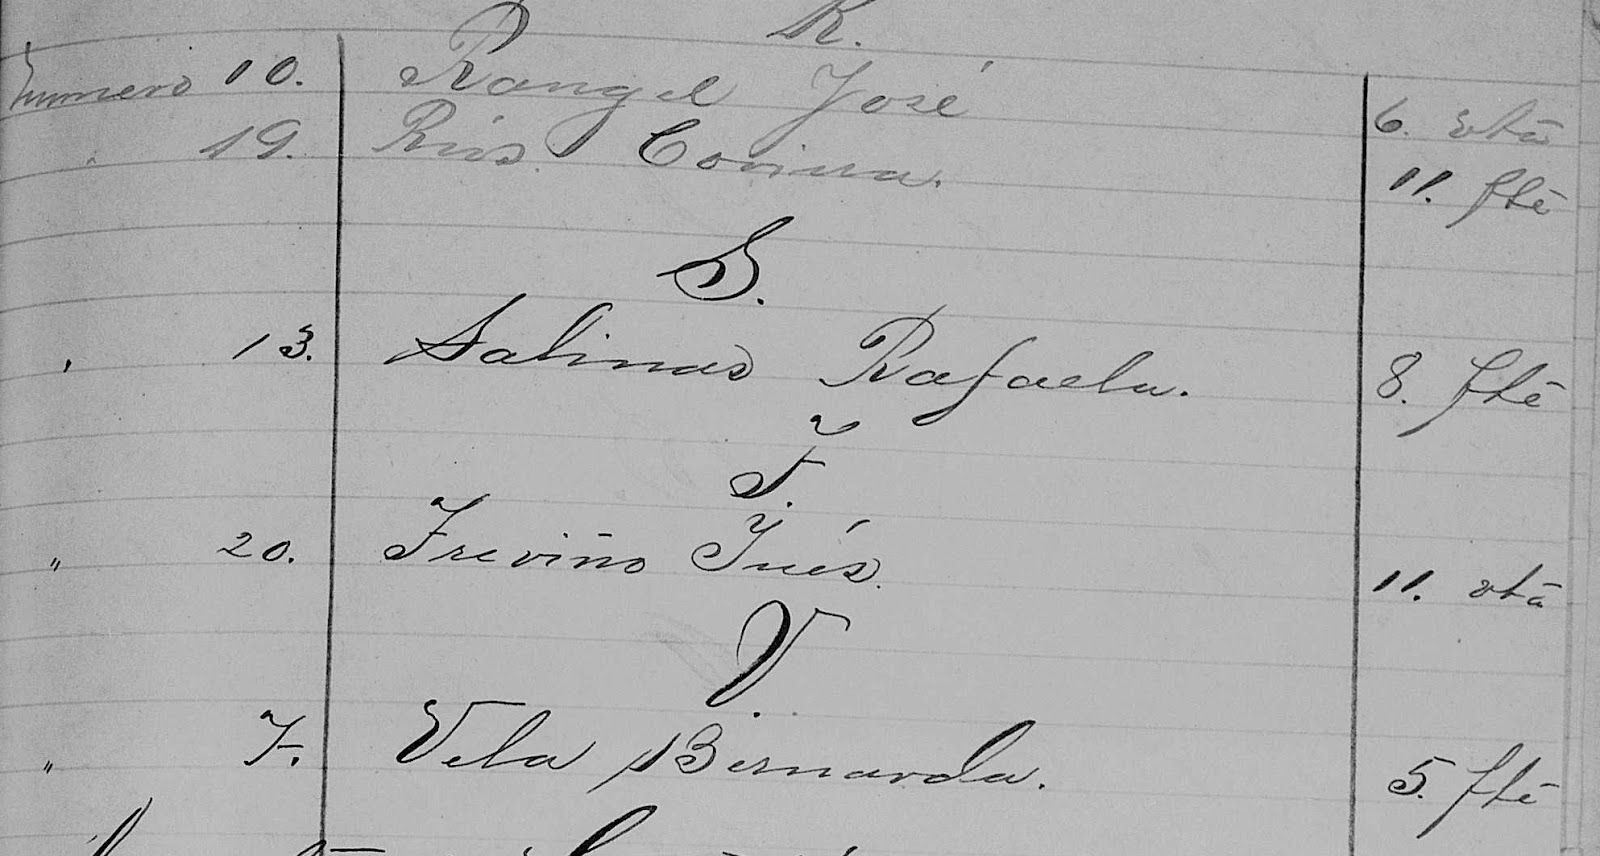 R.
Numero 10. Rangel José 6. vta
" 19. Rios Corina. 11. fte
S.
" 13. Salinas Rafaela. 8. fte
T.
" 20. Treviño Inés. 11. vta
V.
" 7. Vela Bernarda. 5. fte